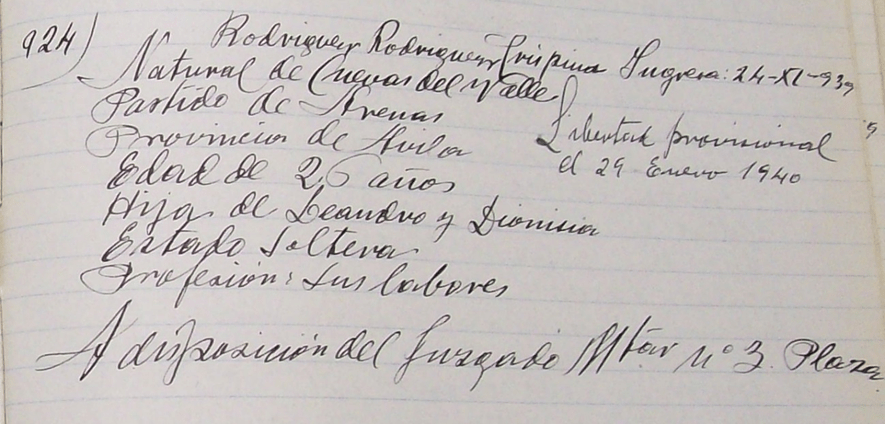 924) Rodriguez Rodriguez Crispina Ingresa: 24-XI-939
Natural de Cuevas del Valle
Partido de Arenas
Libertad provisional
Provincia de Avila
el 29 Enero 1940
Edad de 26 años
Hija de Leandro y Dionisia
Estado Soltera
Profesión: Sus labores
A disposición del Juzgado Mtar nº 3. Plaza